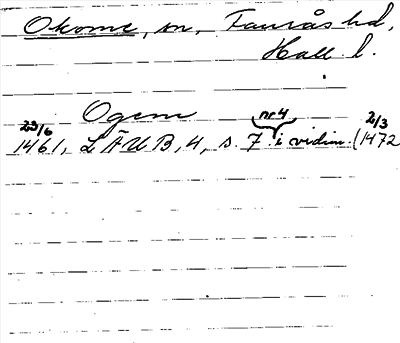 Okome, sn, Faurås hd,
Hall. l.
Ogem
nr 4
23/6 2/3
1461, LÄUB, 4, s. 7 i vidim. (1472